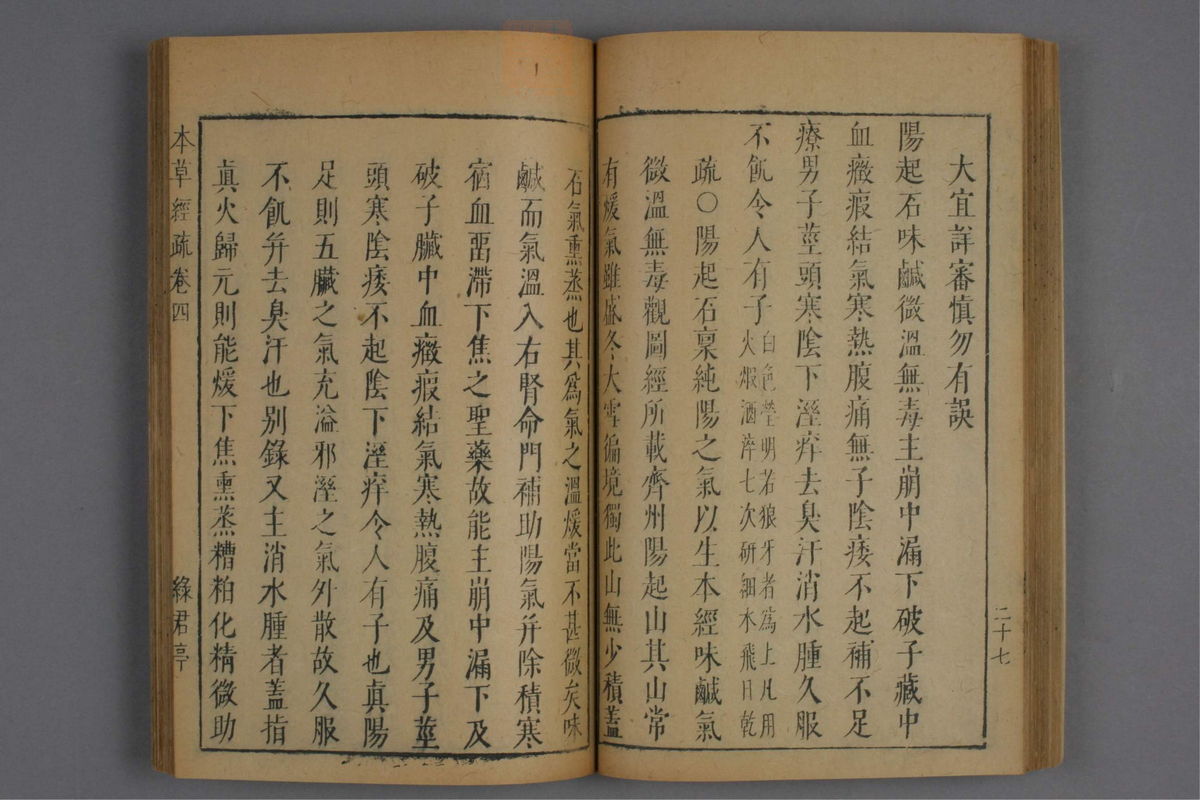 大宜詳審慎勿有誤
陽起石味鹹微溫無毒主崩中漏下破子藏中
血癥瘕結氣寒熱腹痛無子陰痿不起補不足
療男子莖頭寒陰下溼痒去臭汗消水腫久服
不飢令人有子白色瑩明若狼牙者爲上凡用
火煅酒淬七次研細水飛日乾
疏○陽起石稟純陽之氣以生本經味鹹氣
微溫無毒觀圖經所載齊州陽起山其山常
有煖氣雖盛冬大雪徧境獨此山無少積蓋
二十七
石氣熏蒸也其爲氣之溫煖當不甚微矣味
鹹而氣溫入右腎命門補助陽氣幷除積寒
宿血畱滯下焦之聖藥故能主崩中漏下及
破子臟中血癥瘕結氣寒熱腹痛及男子莖
頭寒陰痿不起陰下溼痒令人有子也真陽
足則五臟之氣充溢邪溼之氣外散故久服
不飢幷去臭汗也別錄又主消水腫者蓋指
眞火歸元則能煖下焦熏蒸糟粕化精微助
本草經疏卷四
綠君亭